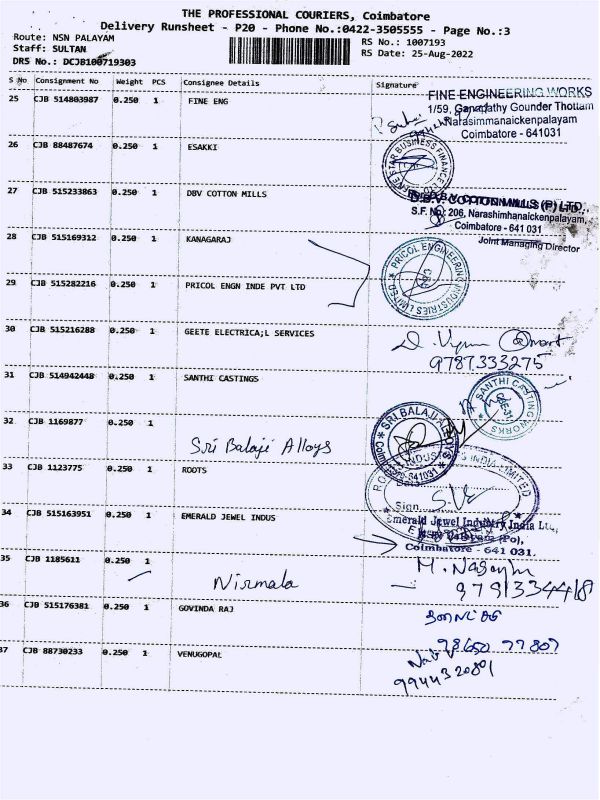 THE PROFESSIONAL COURIERS, Coimbatore
Delivery Runsheet - P20 - Phone No.:0422-3505555 - Page No.:3
Route: NSN PALAYAM
RS No.: 1007193
Staff: SULTAN
RS Date: 25-Aug-2022
DRS No.: DCJB100719303
S No Consignment No Weight PCS Consignee Details Signature
25 CJB 514803987 0.250 1 FINE ENG
FINE ENGINEERING WORKS
1/59, Ganapathy Gounder Thottam
Narasimmanaickenpalayam
Coimbatore - 641031
26 CJB 88487674 0.250 1 ESAKKI
STAR BUSINESS FINANCE
27 CJB 515233863 0.250 1 DBV COTTON MILLS
D.B.V COTTON MILLS (P) LTD.,
S.F. No: 206, Narashimhanaickenpalayam,
Coimbatore - 641 031
Joint Managing Director
28 CJB 515169312 0.250 1 KANAGARAJ
PRICOL ENGINEERING INDUSTRIES LIMITED
CBE
29 CJB 515282216 0.250 1 PRICOL ENGN INDE PVT LTD
30 CJB 515216288 0.250 1 GEETE ELECTRICA;L SERVICES
9787333275
31 CJB 514942448 0.250 1 SANTHI CASTINGS
SANTHI CASTING WORKS
CBE-31
32 CJB 1169877 0.250 1
Sri Balaji Alloys
SRI BALAJI ALLOYS
Coimbatore-641031
33 CJB 1123775 0.250 1 ROOTS
INDUSTRIES INDIA LIMITED
Sign
34 CJB 515163951 0.250 1 EMERALD JEWEL INDUS
Emerald Jewel Industry India Ltd.,
Coimbatore - 641 031.
35 CJB 1185611 0.250 1
Nirmala
9791334418
36 CJB 515176381 0.250 1 GOVINDA RAJ
98650 77807
37 CJB 88730233 0.250 1 VENUGOPAL
9944320801